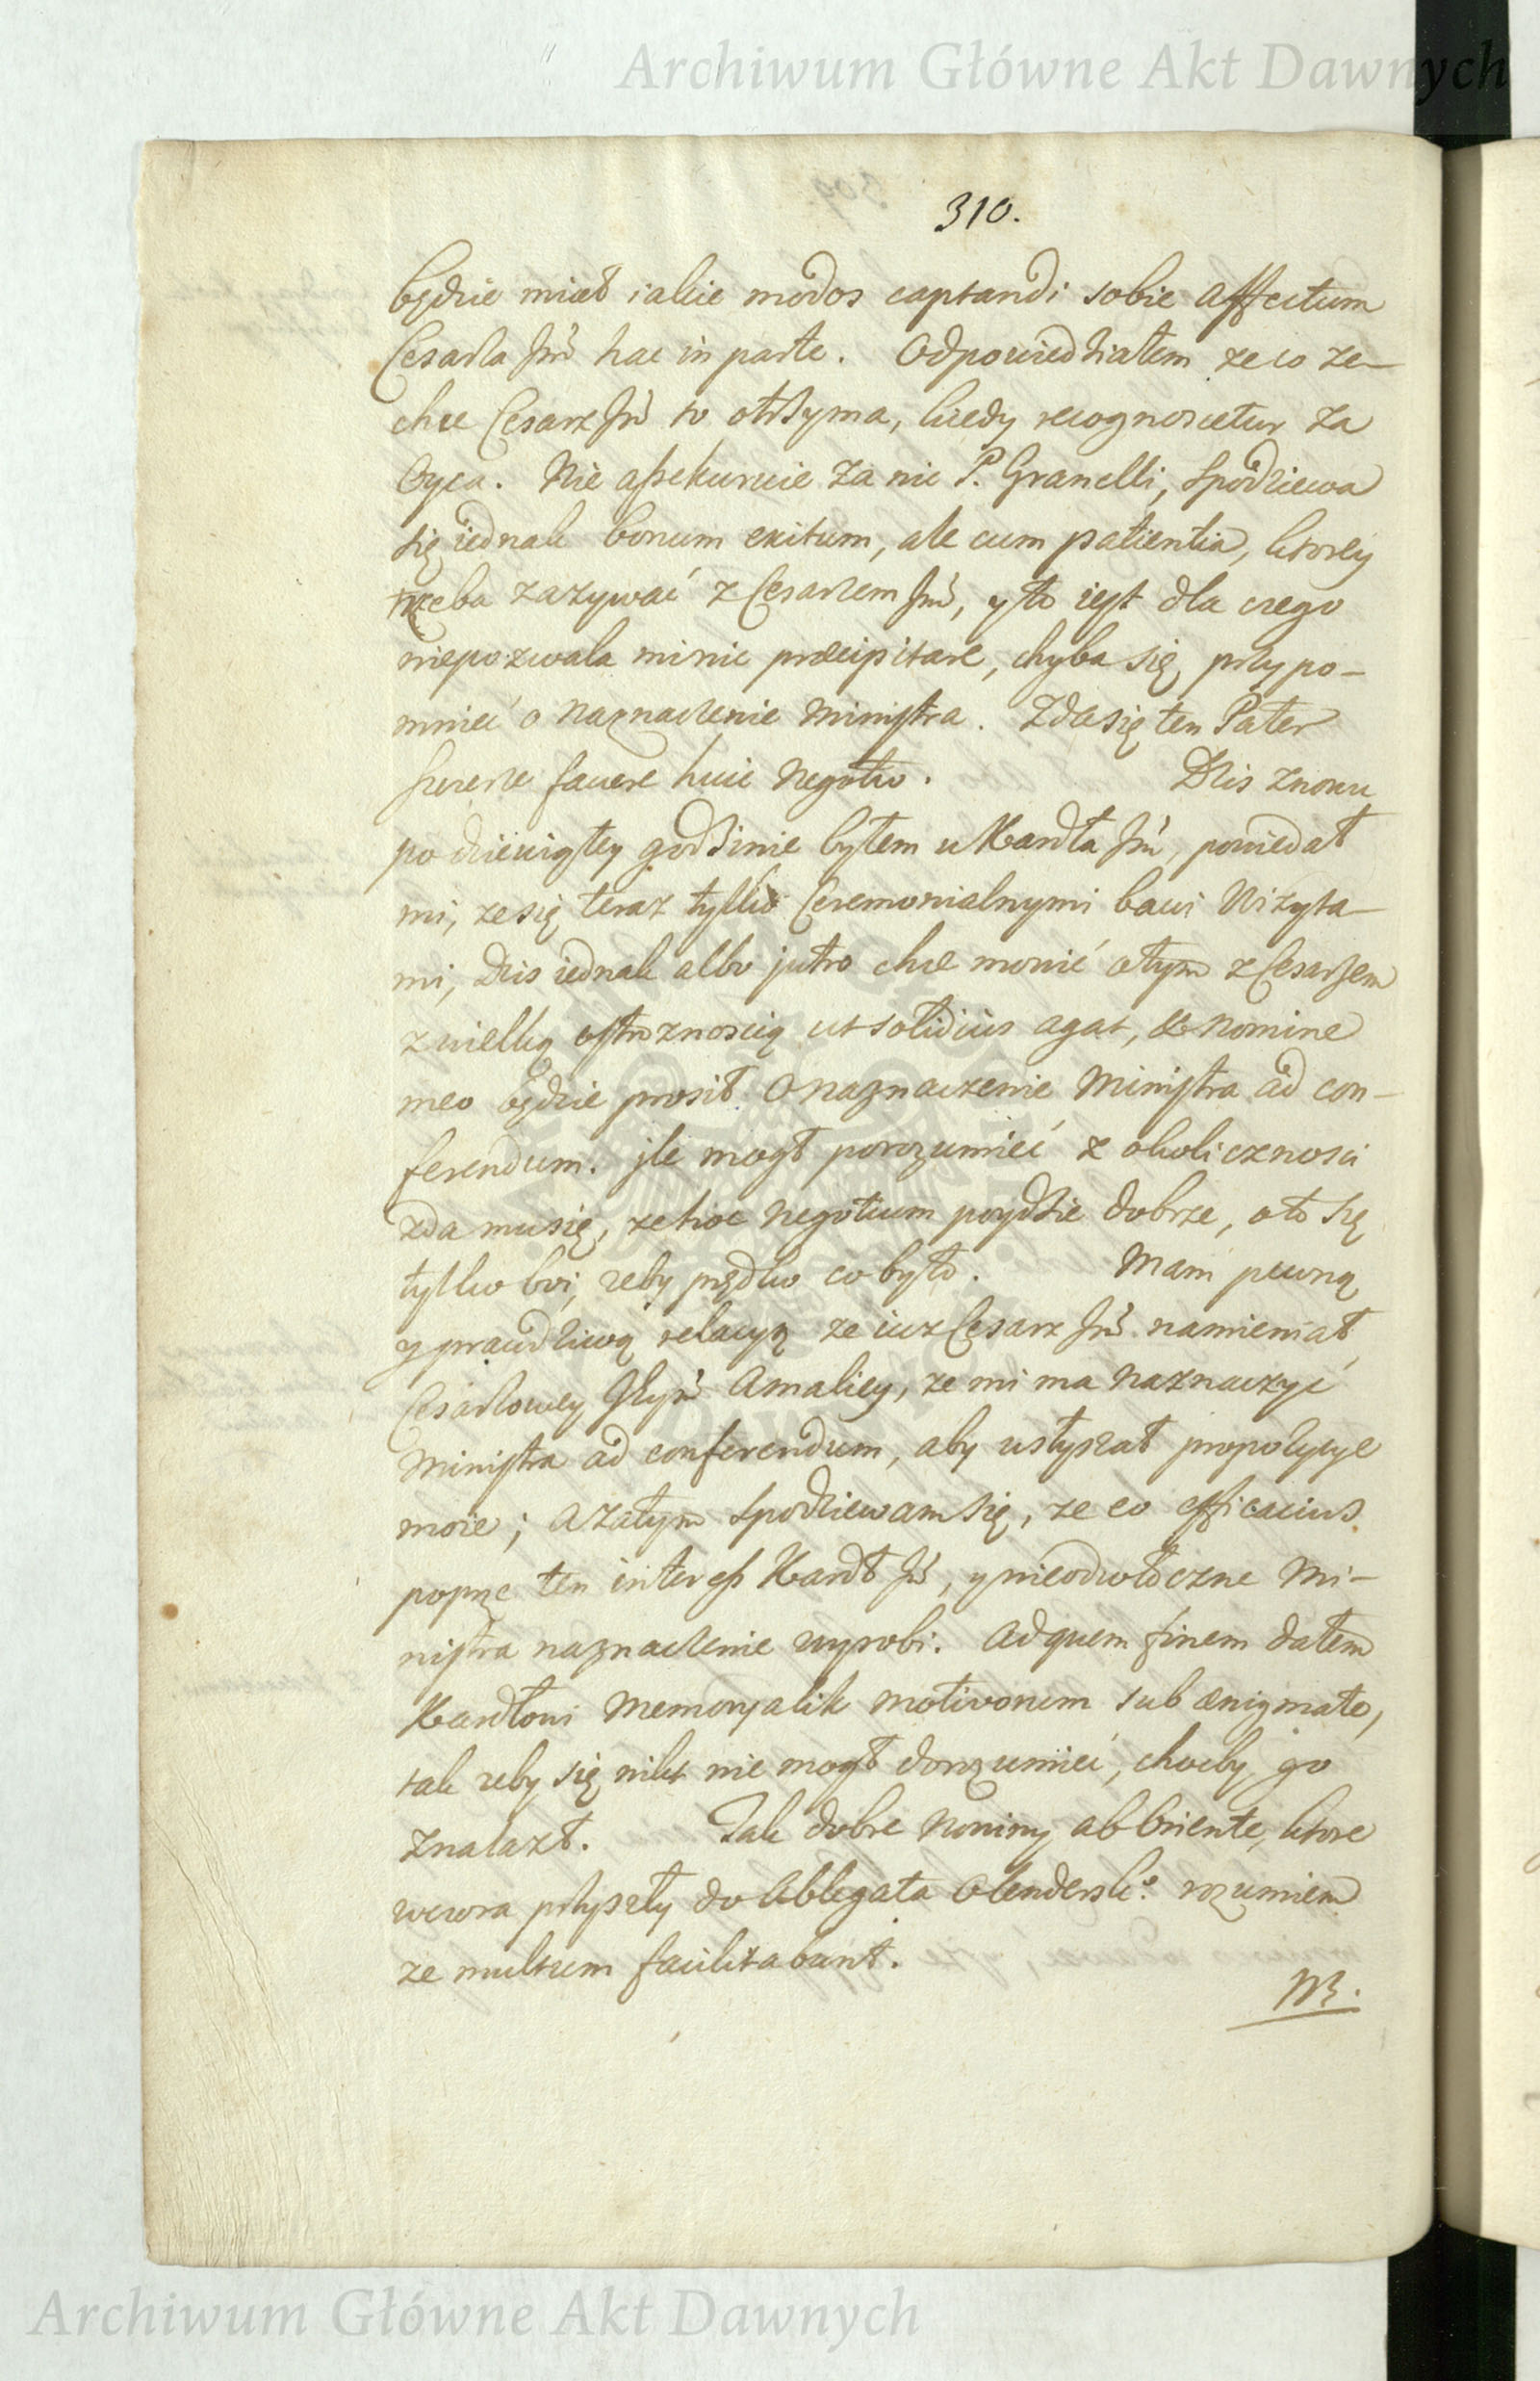 Archiwum Główne Akt Dawnych
310.
będzie miał iakie modos captandi sobie affectum
Cesarza Jmć hac in parte. Odpowiedziałem ze co ze-
chce Cesarz Jmć to otrzyma, kiedy recognoscetur za
Oyca. Nie assekuruie za nic P. Granelli, spodziewa
się iednak bonum exitum, ale cum patientia, ktorey
trzeba zazywać z Cesarzem Jmć, y to iest dla czego
niepozwala mi nic præcipitare, chyba się przypo-
mnieć o naznaczenie Ministra. Zda się ten Pater
szczerze favere huic negotio. Dzis znowu
po dziewiątey godzinie byłem u Kardła Jmć, powiedał
mi, ze się teraz tylko Ceremonialnymi bawi Wizyta-
mi, Dzis iednak albo jutro chce mowić o tym z Cesarzem
z wielką ostroznoscią ut solidius agat, & nomine
meo będzie prosił o naznaczenie Ministra ad con-
ferendum. jle mogł porozumieć z okolicznosci
zda mu się, ze hoc negotium poydzie dobrze, o to się
tylko boi, zeby prędko co było. Mam pewną
y prawdziwą relacyą ze iuz Cesarz Jmć namieniał
Cesarzowey Jeymć Amaliey, ze mi ma naznaczyć
Ministra ad conferendum, aby usłyszał propozycye
moie; a zatym spodziewam się, ze eo efficacius
poprze ten interess Kardł Jmć, y nieodwłoczne Mi-
nistra naznaczenie wyrobi. Ad quem finem dałem
Kardłowi Memoryalik motivorum sub ænigmate,
tak zeby się nikt nie mogł dorozumieć, choćby go
znalazł. Tak dobre Nowiny ab Oriente, ktore
wczora przyszły do Ablegata Olenderski° rozumiem
ze multum facilitabunt.
Archiwum Główne Akt Dawnych